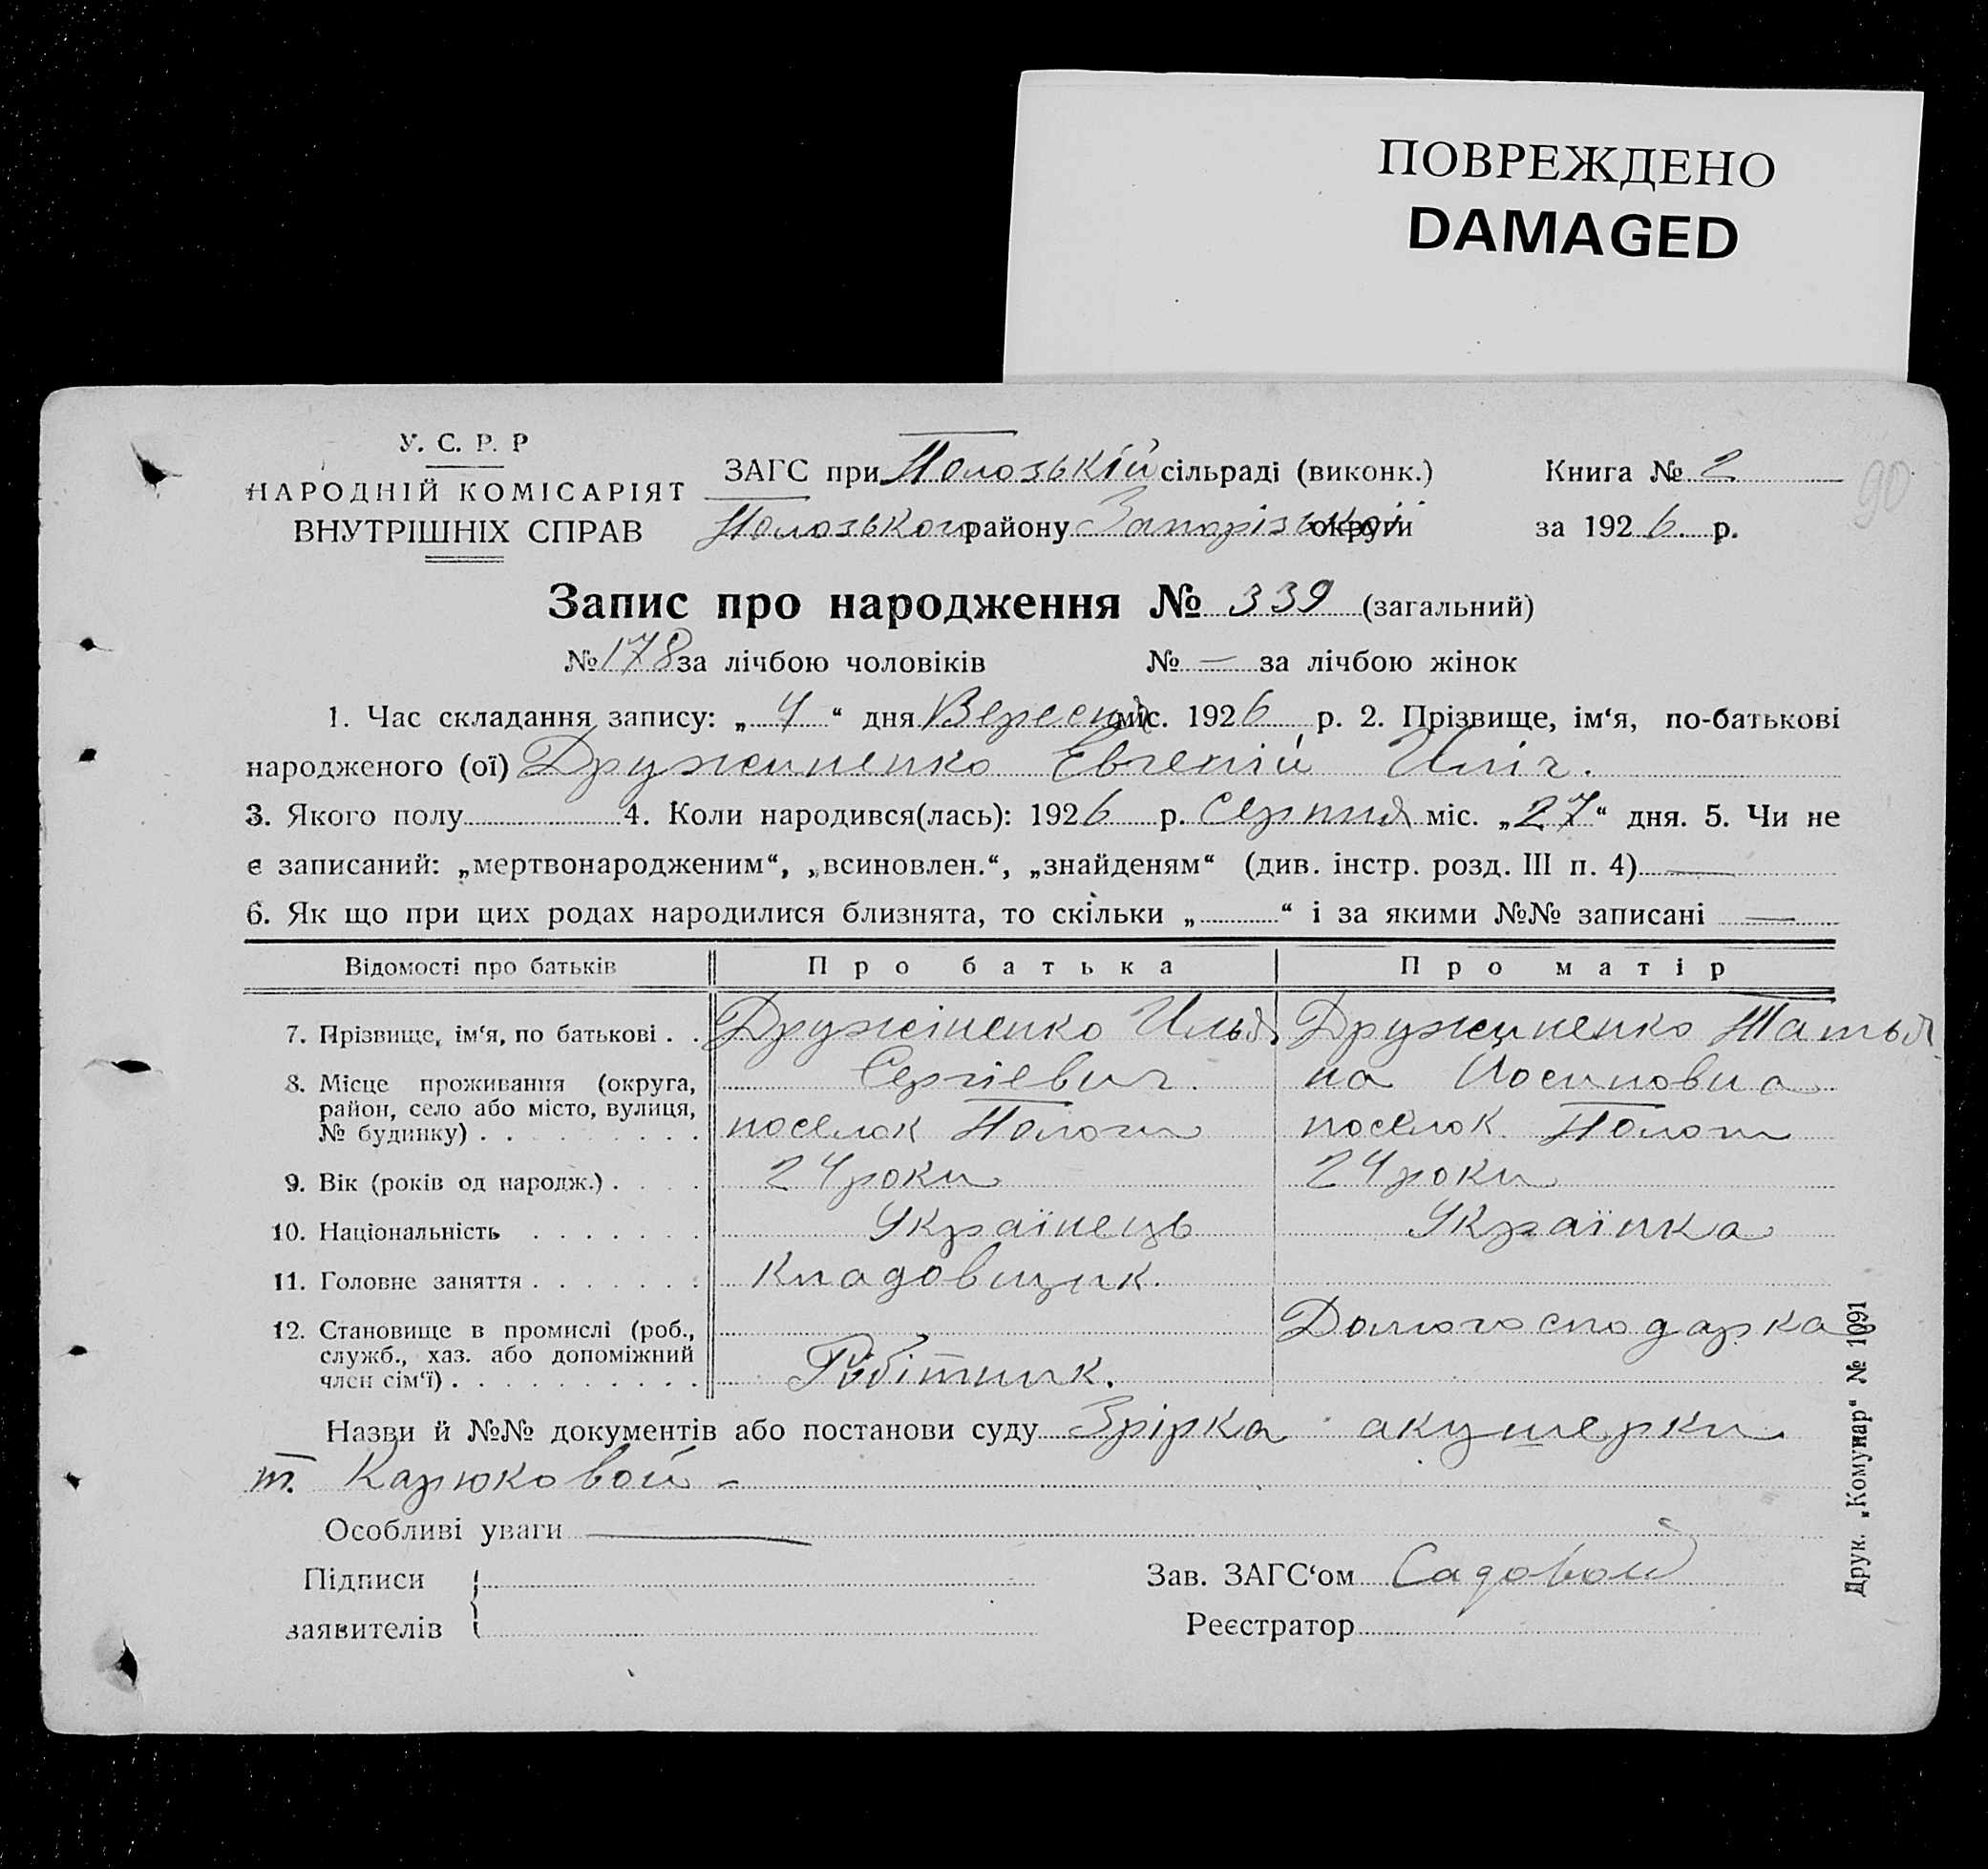 ПОВРЕЖДЕНО
DAMAGED
90
У. С. Р. Р
НАРОДНІЙ КОМІСАРІЯТ
ВНУТРІШНІХ СПРАВ
ЗАГС при Пологській сільраді (виконк.)
Пологського району Запорізької округи
Книга № 2
за 1926 р.
Запис про народження № 339 (загальний)
№ 178 за лічбою чоловіків № — за лічбою жінок
1. Час складання запису: „ 4 “ дня Вересня міс. 1926 р. 2. Прізвище, ім‘я, по-батькові
народженого (ої) Дружиненко Евгеній Илiч.
3. Якого полу 4. Коли народився(лась): 1926 р. Серпня міс. „27“ дня. 5. Чи не
є записаний: „мертвонародженим“, „всиновлен.“, „знайденям“ (див. інстр. розд. III п. 4) —
6. Як що при цих родах народилися близнята, то скільки „ “ і за якими №№ записані —
Відомості про батьків Про батька Про матір
7. Прізвище, ім‘я, по батькові . . Дружіненко Илья Дружиненко Татья
Сергіевич. на Йосиповна
8. Місце проживання (округа,
район, село або місто, вулиця,
№ будинку) . . . . . . . . . поселок Пологи поселок Пологи
9. Вік (років од народж.) . . . . 24 роки 24 роки
10. Національність . . . . . . . Українець Українка
11. Головне заняття . . . . . . . Кладовщик.
12. Становище в промислі (роб.,
служб., хаз. або допоміжний
член сім‘ї) . . . . . . . . . . Робітник. Домогосподарка
Назви й №№ документів або постанови суду акушерки
т. Карюковой –
Особливі уваги —
Підписи
заявителів
Зав. ЗАГС‘ом Садовой
Реєстратор
Друк. „Комунар“ № 1091